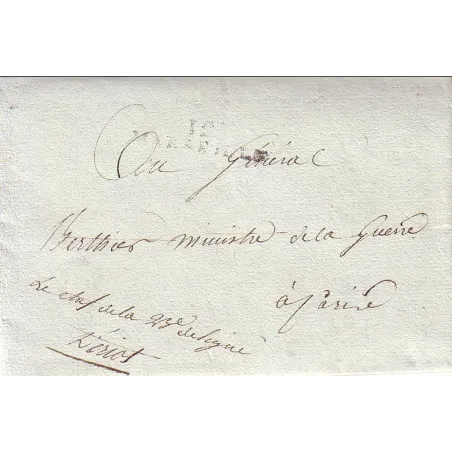 12
MARSEILLE
Au Général
Berthier ministre de la Guerre
à Paris
Le chef de la 23e de ligne
Dériot